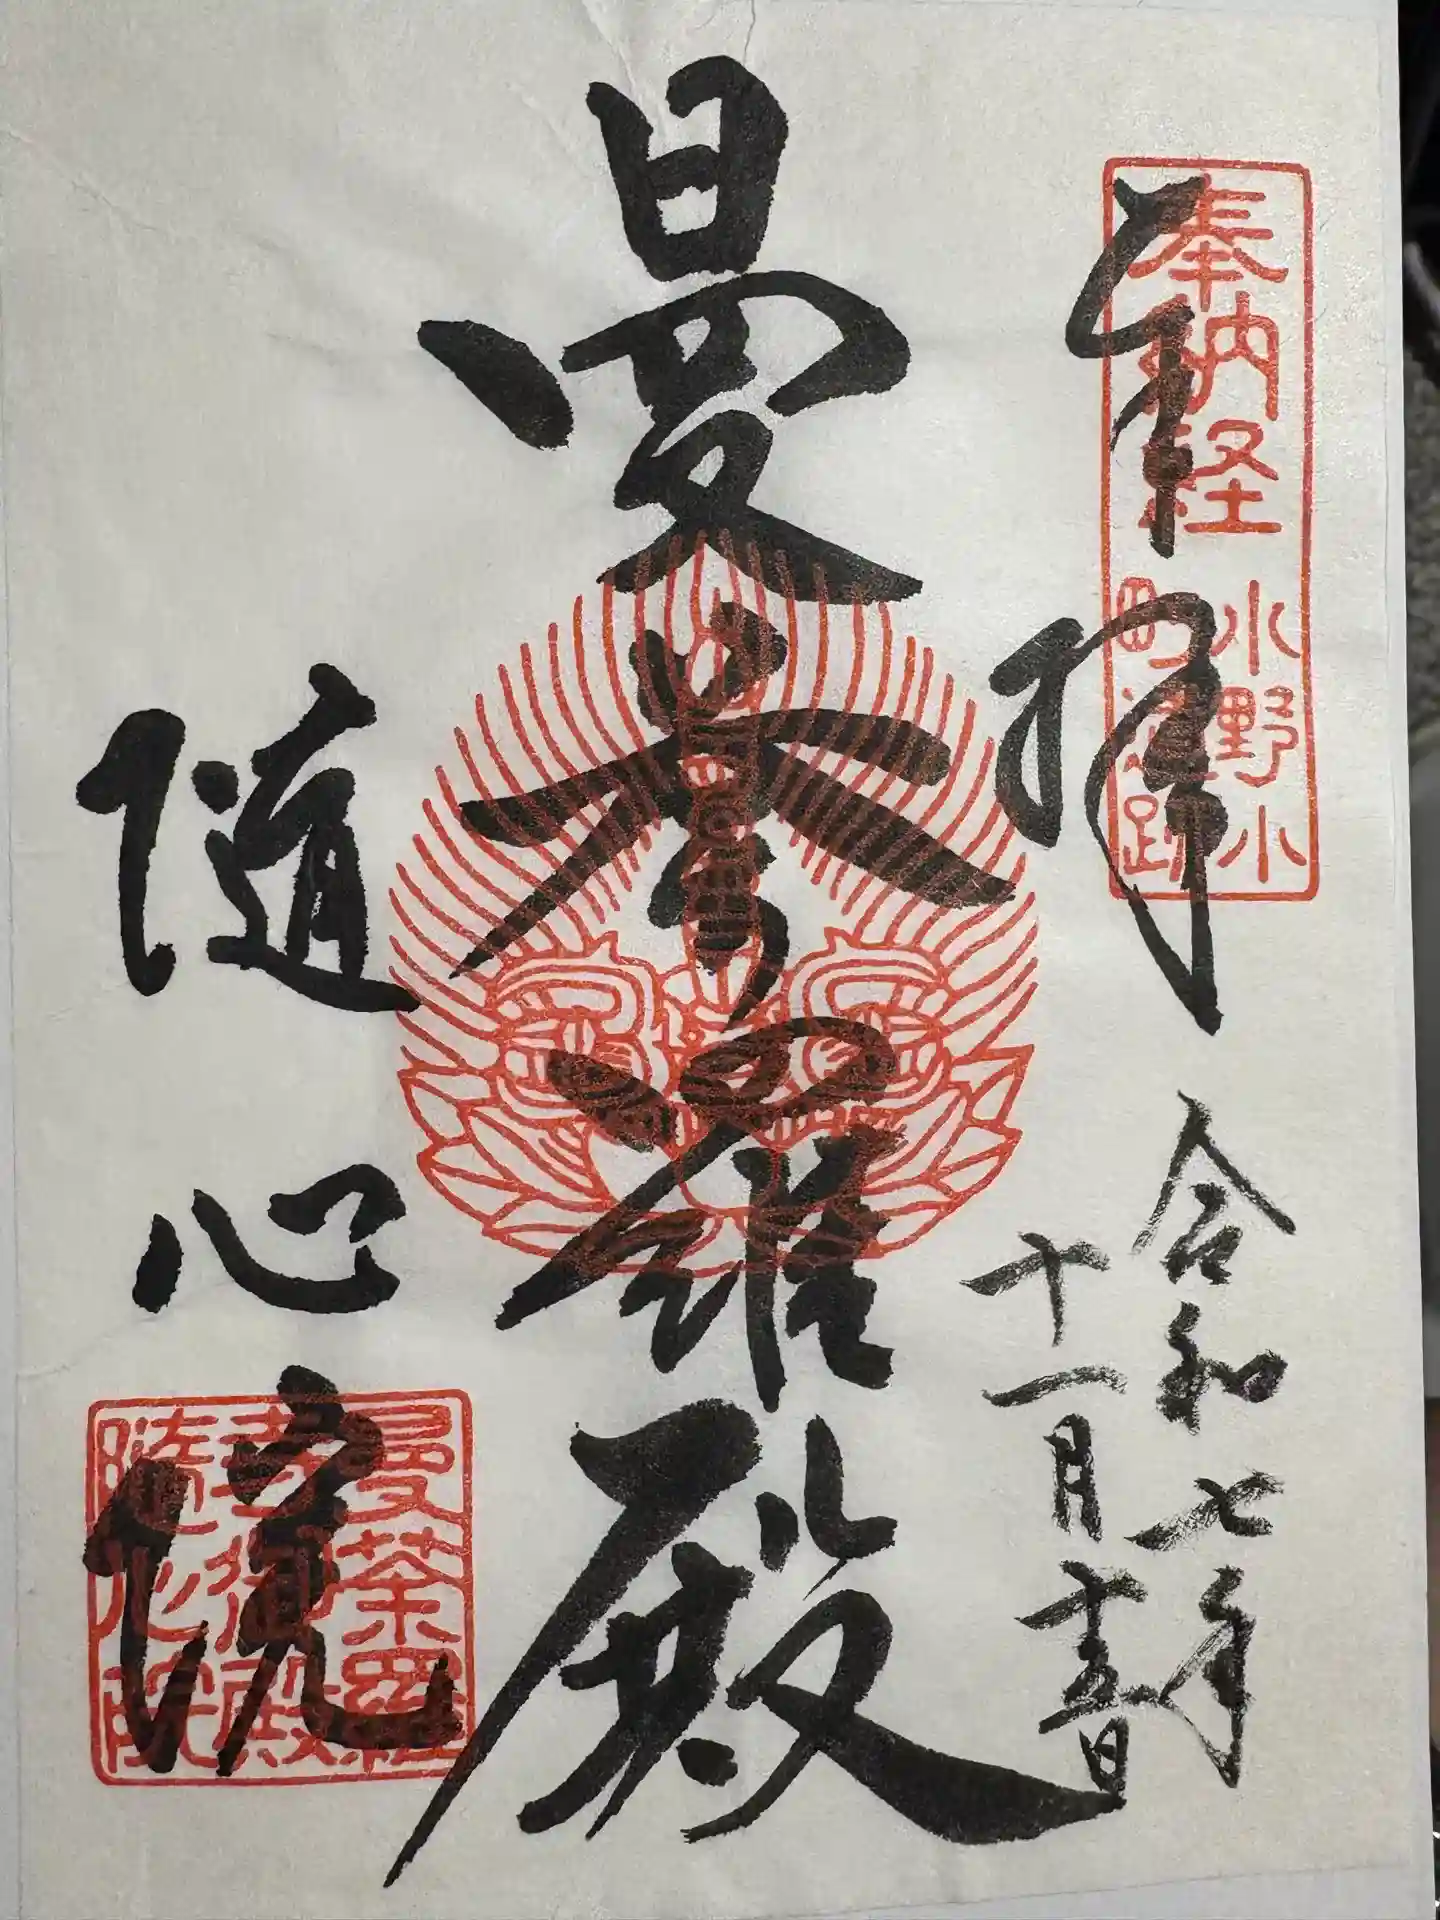 奉納経
小野小
町遺跡
奉拝
令和七年
十一月十五日
曼荼羅殿
随心院
曼荼羅
御殿
隨心院